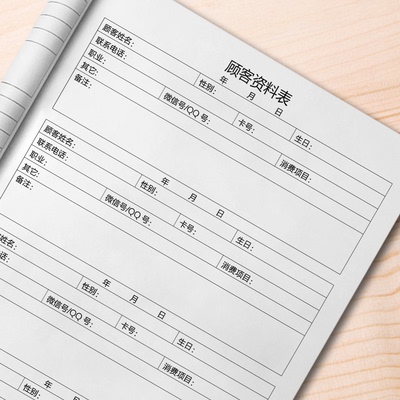 顾客资料表
年 月 日
顾客姓名： 性别：
联系电话： 微信号/QQ号： 卡号： 生日：
职业：
其它： 消费项目：
备注：
年 月 日
顾客姓名： 性别：
联系电话： 微信号/QQ号： 卡号： 生日：
职业：
其它： 消费项目：
备注：
年 月 日
姓名： 性别：
电话： 微信号/QQ号： 卡号： 生日：
消费项目：
年 月 日
性别：
微信号/QQ号： 卡号： 生日：